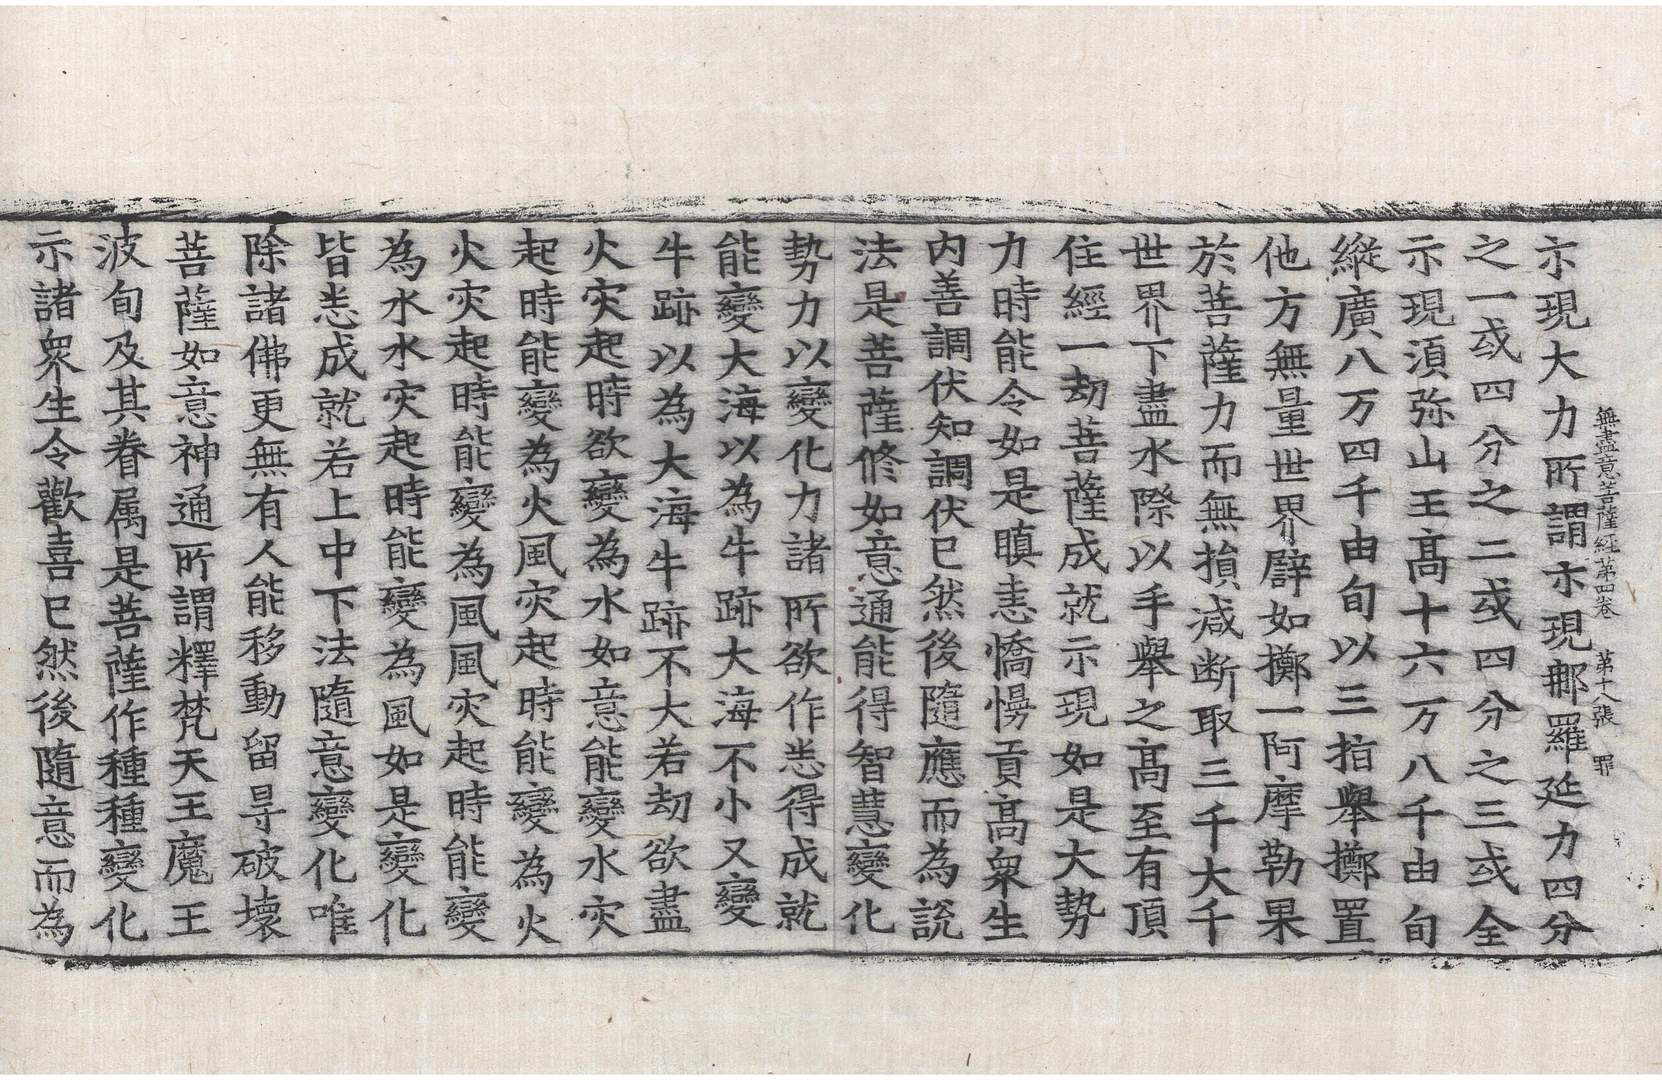 無盡意菩薩經第四卷　第十八張　罪
示現大力所謂示現那羅延力四分
之一或四分之二或四分之三或全
示現須弥山王髙十六万八千由旬
縱廣八万四千由旬以三指舉擲置
他方無量世界譬如擲一阿摩勒果
於菩薩力而無損减断取三千大千
世界下盡水際以手舉之髙至有頂
住經一劫菩薩成就示現如是大勢
力時能令如是瞋恚憍慢貢髙衆生
内善調伏知調伏已然後隨應而為說
法是菩薩修如意通能得智慧變化
勢力以變化力諸所欲作悉得成就
能變大海以為牛跡大海不小又變
牛跡以為大海牛跡不大若劫欲盡
火灾起時欲變為水如意能變水灾
起時能變為火風灾起時能變為火
火灾起時能變為風風灾起時能變
為水水灾起時能變為風如是變化
皆悉成就若上中下法隨意變化唯
除諸佛更無有人能移動留㝵破壞
菩薩如意神通所謂釋梵天王魔王
波旬及其眷属是菩薩作種種變化
示諸衆生令歡喜已然後隨意而為